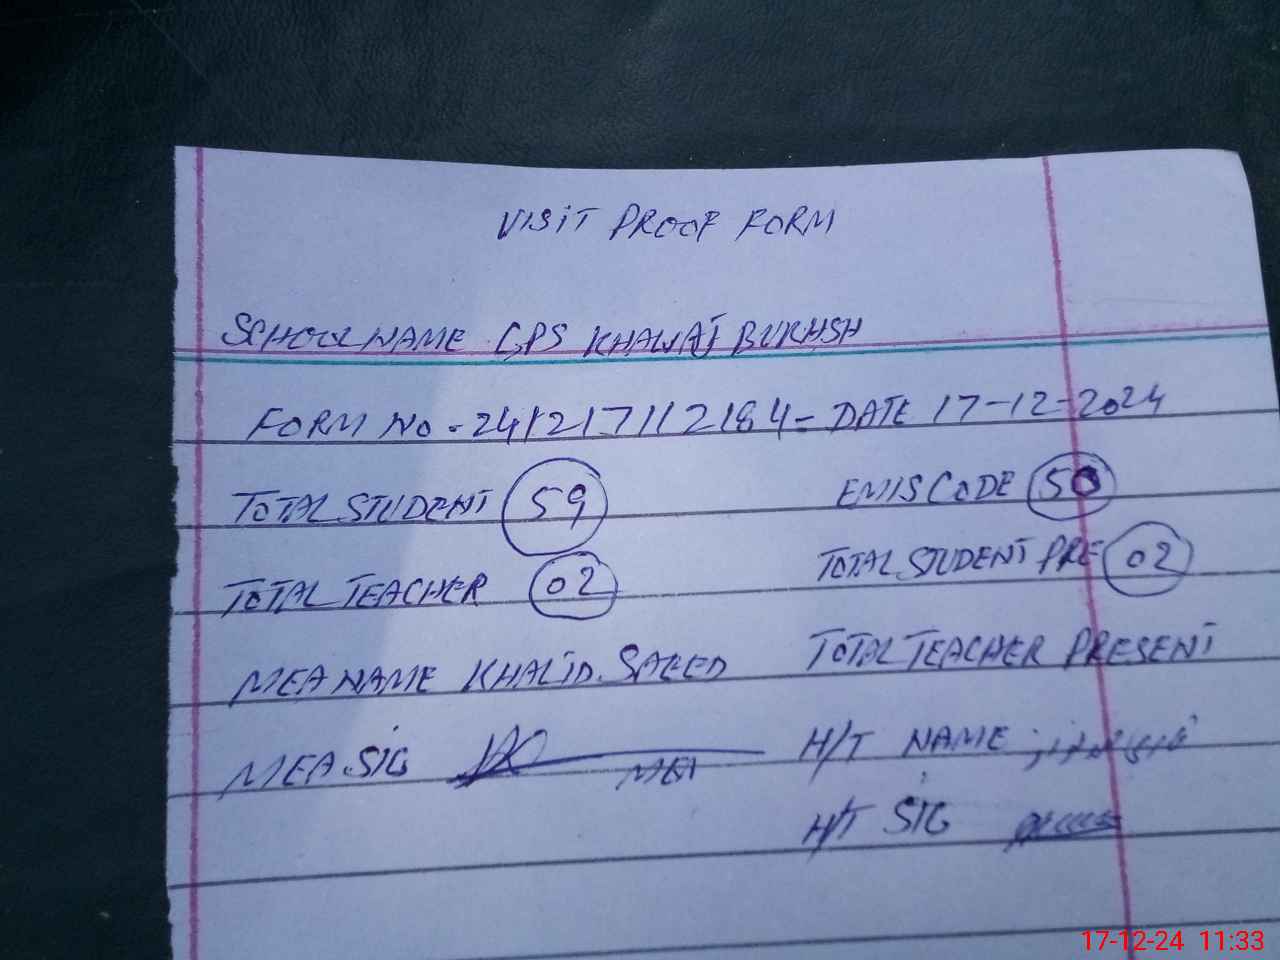 VISIT PROOF FORM
SCHOOL NAME GPS KHAWAJ BUKHSH
FORM NO - 241217112184 = DATE 17-12-2024
TOTAL STUDENT 59 EMIS CODE 50
TOTAL TEACHER 02 TOTAL STUDENT PRE 02
MEA NAME KHALID SAEED TOTAL TEACHER PRESENT
MEA SIG MEA H/T NAME
H/T SIG
17-12-24 11:33